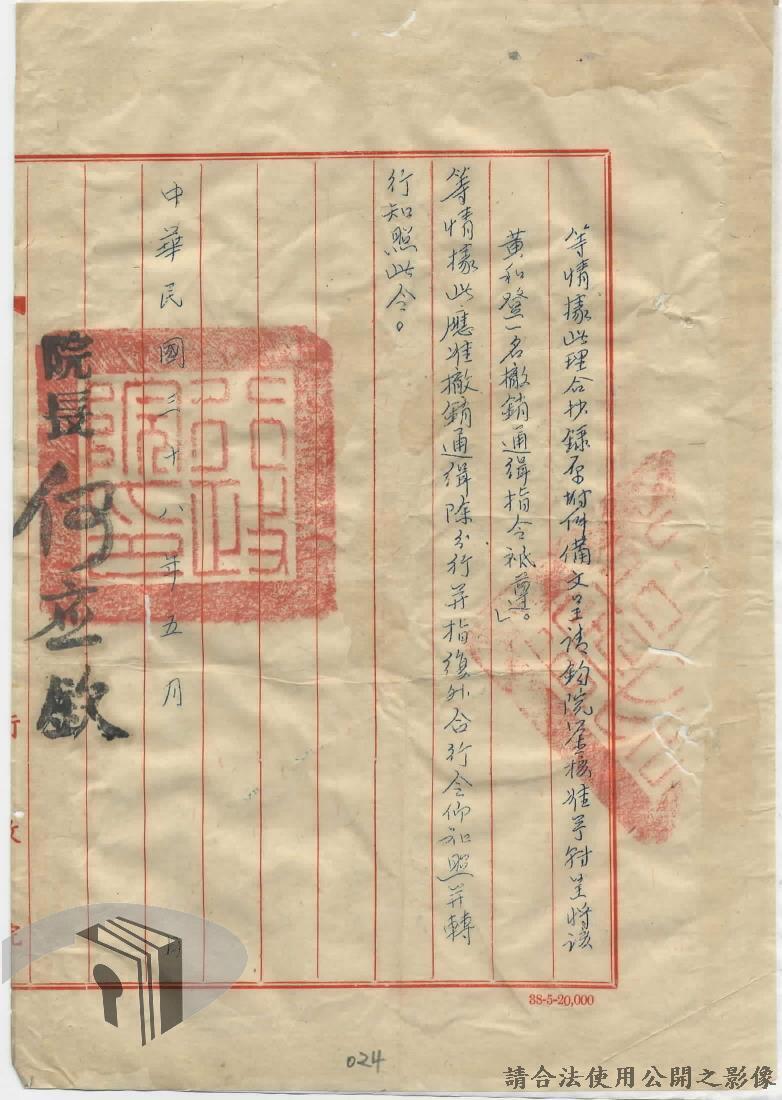 等情據此理合抄錄原附件備文呈請鈞院鑒核准予轉呈將該
黃和登一名撤銷通緝指令祗遵。」
等情據此應准撤銷通緝除分行并指復外合行令仰知照并轉
行知照此令。
中華民國三十八年五月
日
院長何應欽
行政院
行政院印
38-5-20,000
024
請合法使用公開之影像